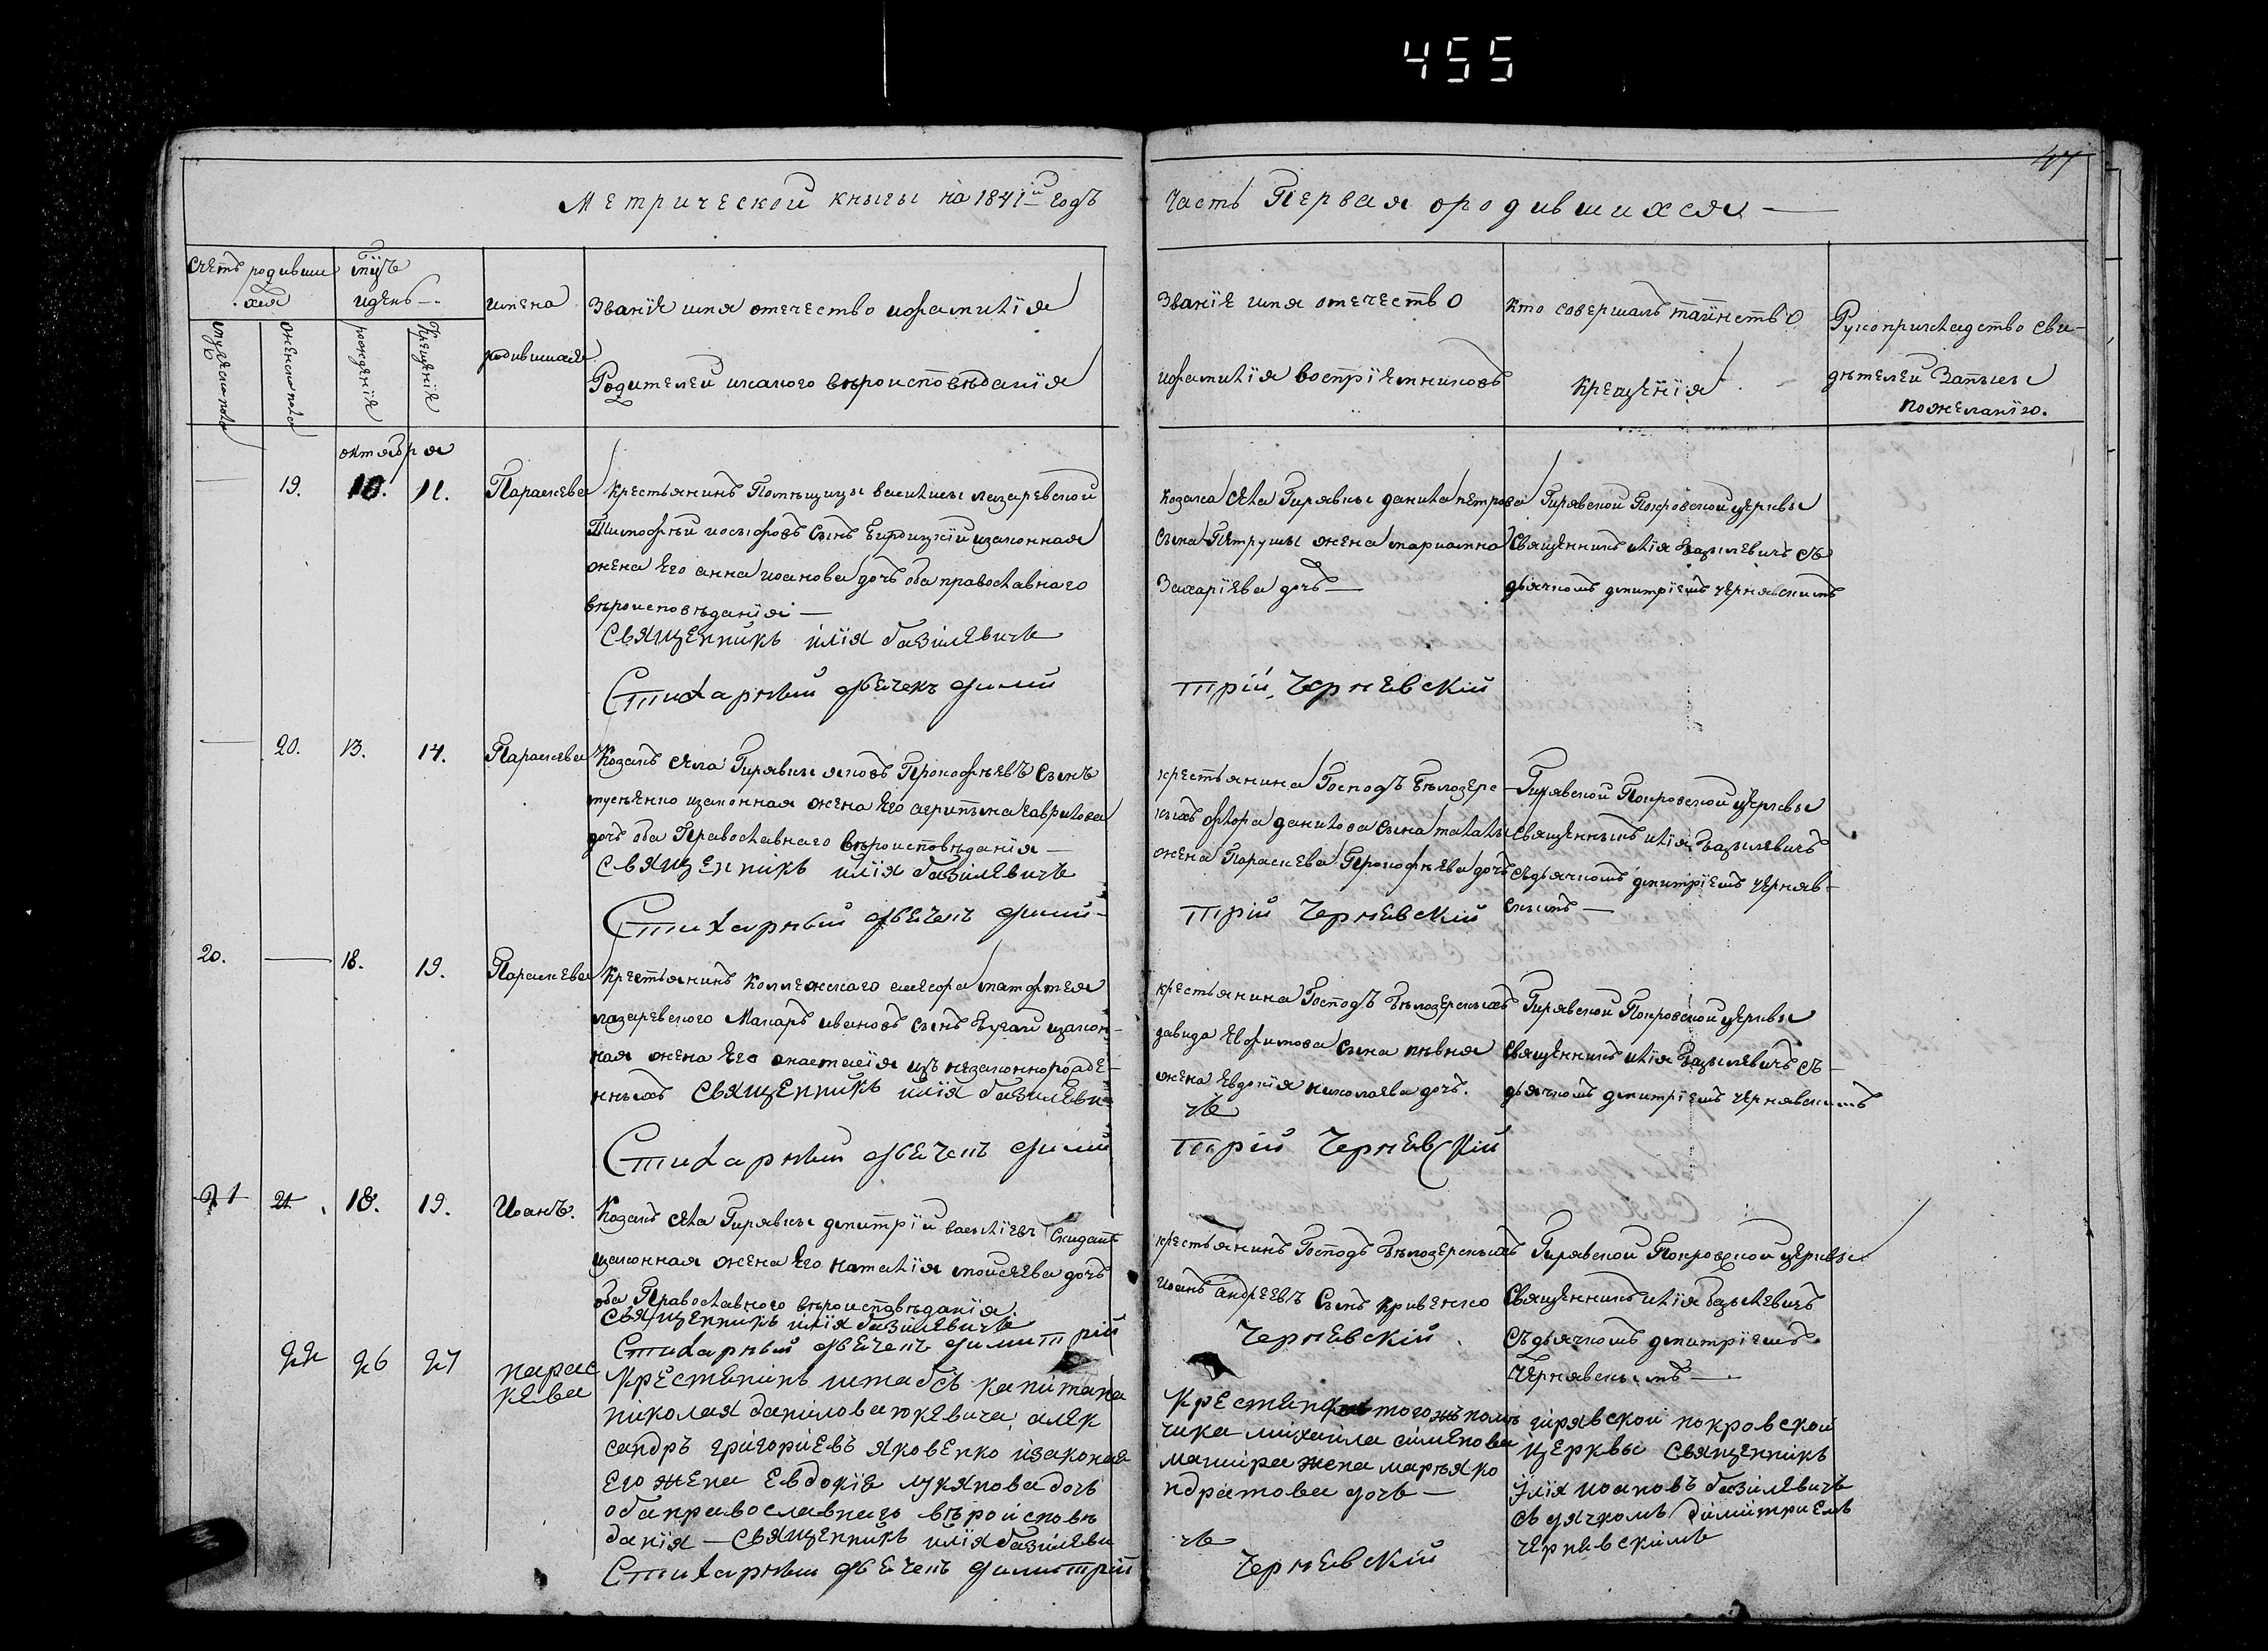 455
47
Метрической книги на 1841й годъ
Часть Первая ородившихся —
Счетъ родивши
хся
Мужеска пола
Женска пола
Мцъ
идень
рожденiя
Крещенiя
имена
родившихся
Званiе имя отечество ифамилiя
Родителей икакого вѣроисповѣданiя
Званiе имя отечество
ифамилiя воспрiемниковъ
Кто совершалъ таинство
крещенiя
Рукоприкладство сви-
дѣтелей Записи
пожеланiю.
октября
— 19. 10. 11. Параскева
Крестьянинъ Помѣщицы василисы лазаревской
Тимофѣй иосифовъ сынъ изаконная
жена Его анна иоанова дочъ оба православного
вѣроисповѣданiя —
Священникъ илiя базилевичъ
Стихарный дьячекъ дими
трiй Черневскiй
Козака села Гирявки данила петрова
сына Петруши жена марианна
Захарiева дочъ —
Гирявской Покровской церквы
Священникъ илiя Базилевичъ съ
дьячкомъ дмитрiемъ чернявскимъ
— 20. 13. 14. Параскева
Козакъ села Гирявки яковъ Прокофѣевъ сынъ
изаконная жена Его агрипына гаврилова
дочъ оба Православнаго вѣроисповѣданiя —
Священникъ илiя базилевичъ
Стихарный дьячекъ дими-
трiй Черневскiй
крестьянина Господъ Бѣлозерс-
кихъ флора данилова сына
жена Параскева Прокофѣева дочъ
Гирявской Покровской церквы
Священникъ илiя Базилевичъ
съдьячкомъ дмитрiемъ черняв-
скимъ —
20. — 18. 19. Параскева
Крестьянинъ Коллежскаго асесора матфея
лазаревского Макаръ ивановъ сынъ изакон-
ная жена Его анастасiя изъ незаконнорожде-
нныхъ Священникъ илiя базилеви
чъ
Стихарный дьячекъ дими
трiй Черневскiй
крестьянина Господъ Бѣлозерскихъ
давида Ефимова сына пѣвня
жена Евдокiя николаева дочъ.
Гирявской Покровской церквы
священникъ илiя Базилевичъ съ-
дьячкомъ дмитрiемъ чернявскимъ
21 21. 18. 19. Иоанъ.
Козакъ села Гирявки дмитрiй василiевъ Скидан
изаконная жена Его наталiя моисеева дочъ
оба Православного вѣроисповѣданiя.
Священникъ илiя базилевичъ
Стихарный дьячекъ димитрiй
Черневскiй
крестьянинъ Господъ Бѣлозерскихъ
Иоанъ андреевъ сынъ кривенко
Гирявской Покровской церквы
Священникъ илiя базилевичъ
Съдьячкомъ дмитрiемъ
Чернявскимъ —
22 26 27 парас
кева
Крестянинъ штабсъ капитана
николая данилова юкевича алек
сандръ григорiевъ яковенко изаконая
его жена Евдокiя лукянова дочъ
оба православнаго вѣроисповѣ
данiя — Священникъ илiя базилеви
чъ
Стихарный дьячекъ димитрiй
Черневскiй
того жъ помѣ
чика михаила сименова
жена маръя ко
ндратова дочъ —
гирявской покровской
церквы Священникъ
илiя иоановъ базилевичъ
съ дячкомъ димитриемъ
черневскимъ